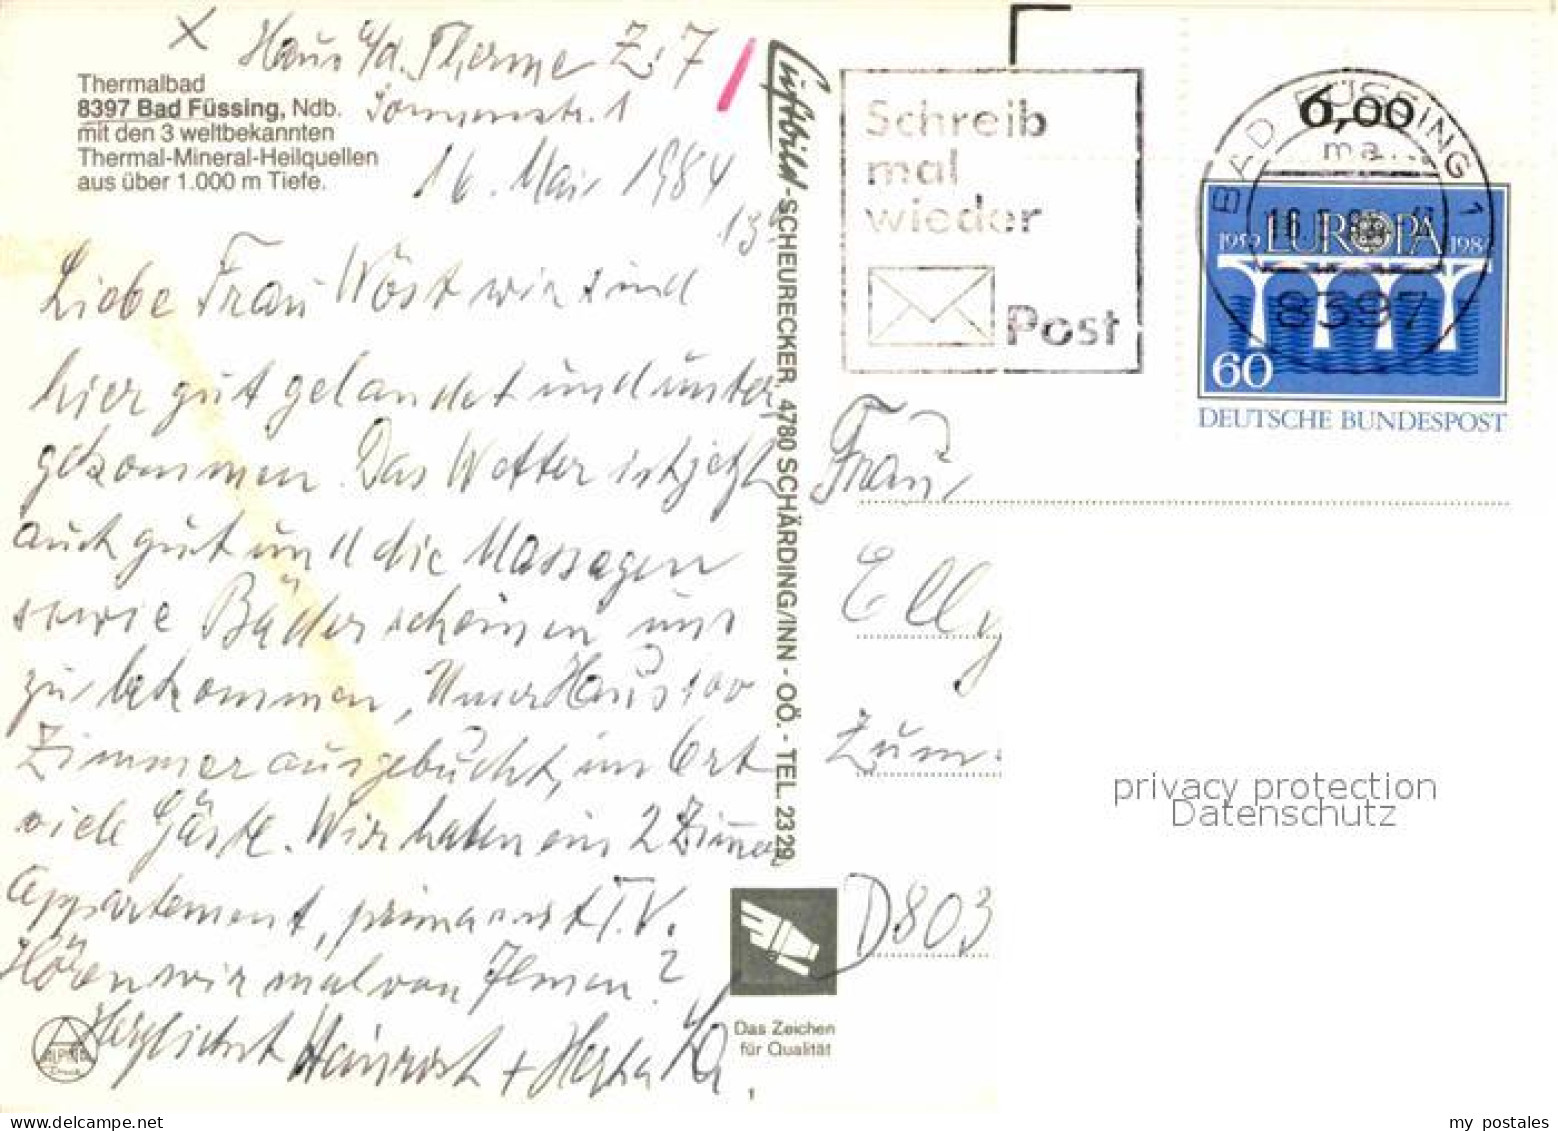 X Haus a/d. Therme Z. 7
Thermalbad
8397 Bad Füssing, Ndb.
Sonnenstr. 1
mit den 3 weltbekannten
Thermal-Mineral-Heilquellen
aus über 1.000 m Tiefe.
16. Mai 1984
13
Liebe Frau Wöst wir sind
hier gut gelandet und unter
gekommen. Das Wetter ist jetzt
auch gut und die Massagen
sowie Bäder scheinen uns
zu bekommen, Unser Haus 100
Zimmer ausgebucht, im Ort
viele Gäste. Wir haben ein 2 Zimmer
Appartement, prima mit T.V.
Hören wir mal von Ihnen?
Herzlichst Heinrich + Herta
ALPINE
Druck
Luftbild-SCHEURECKER, 4780 SCHÄRDING/INN - OÖ. - TEL. 2329
Das Zeichen
für Qualität
1
Schreib
mal
wieder
Post
6,00
ma...
BAD FÜSSING 1
8397
1959 EUROPA 1984
60
DEUTSCHE BUNDESPOST
Frau
Elly
Zum
D803
privacy protection
Datenschutz
my postales